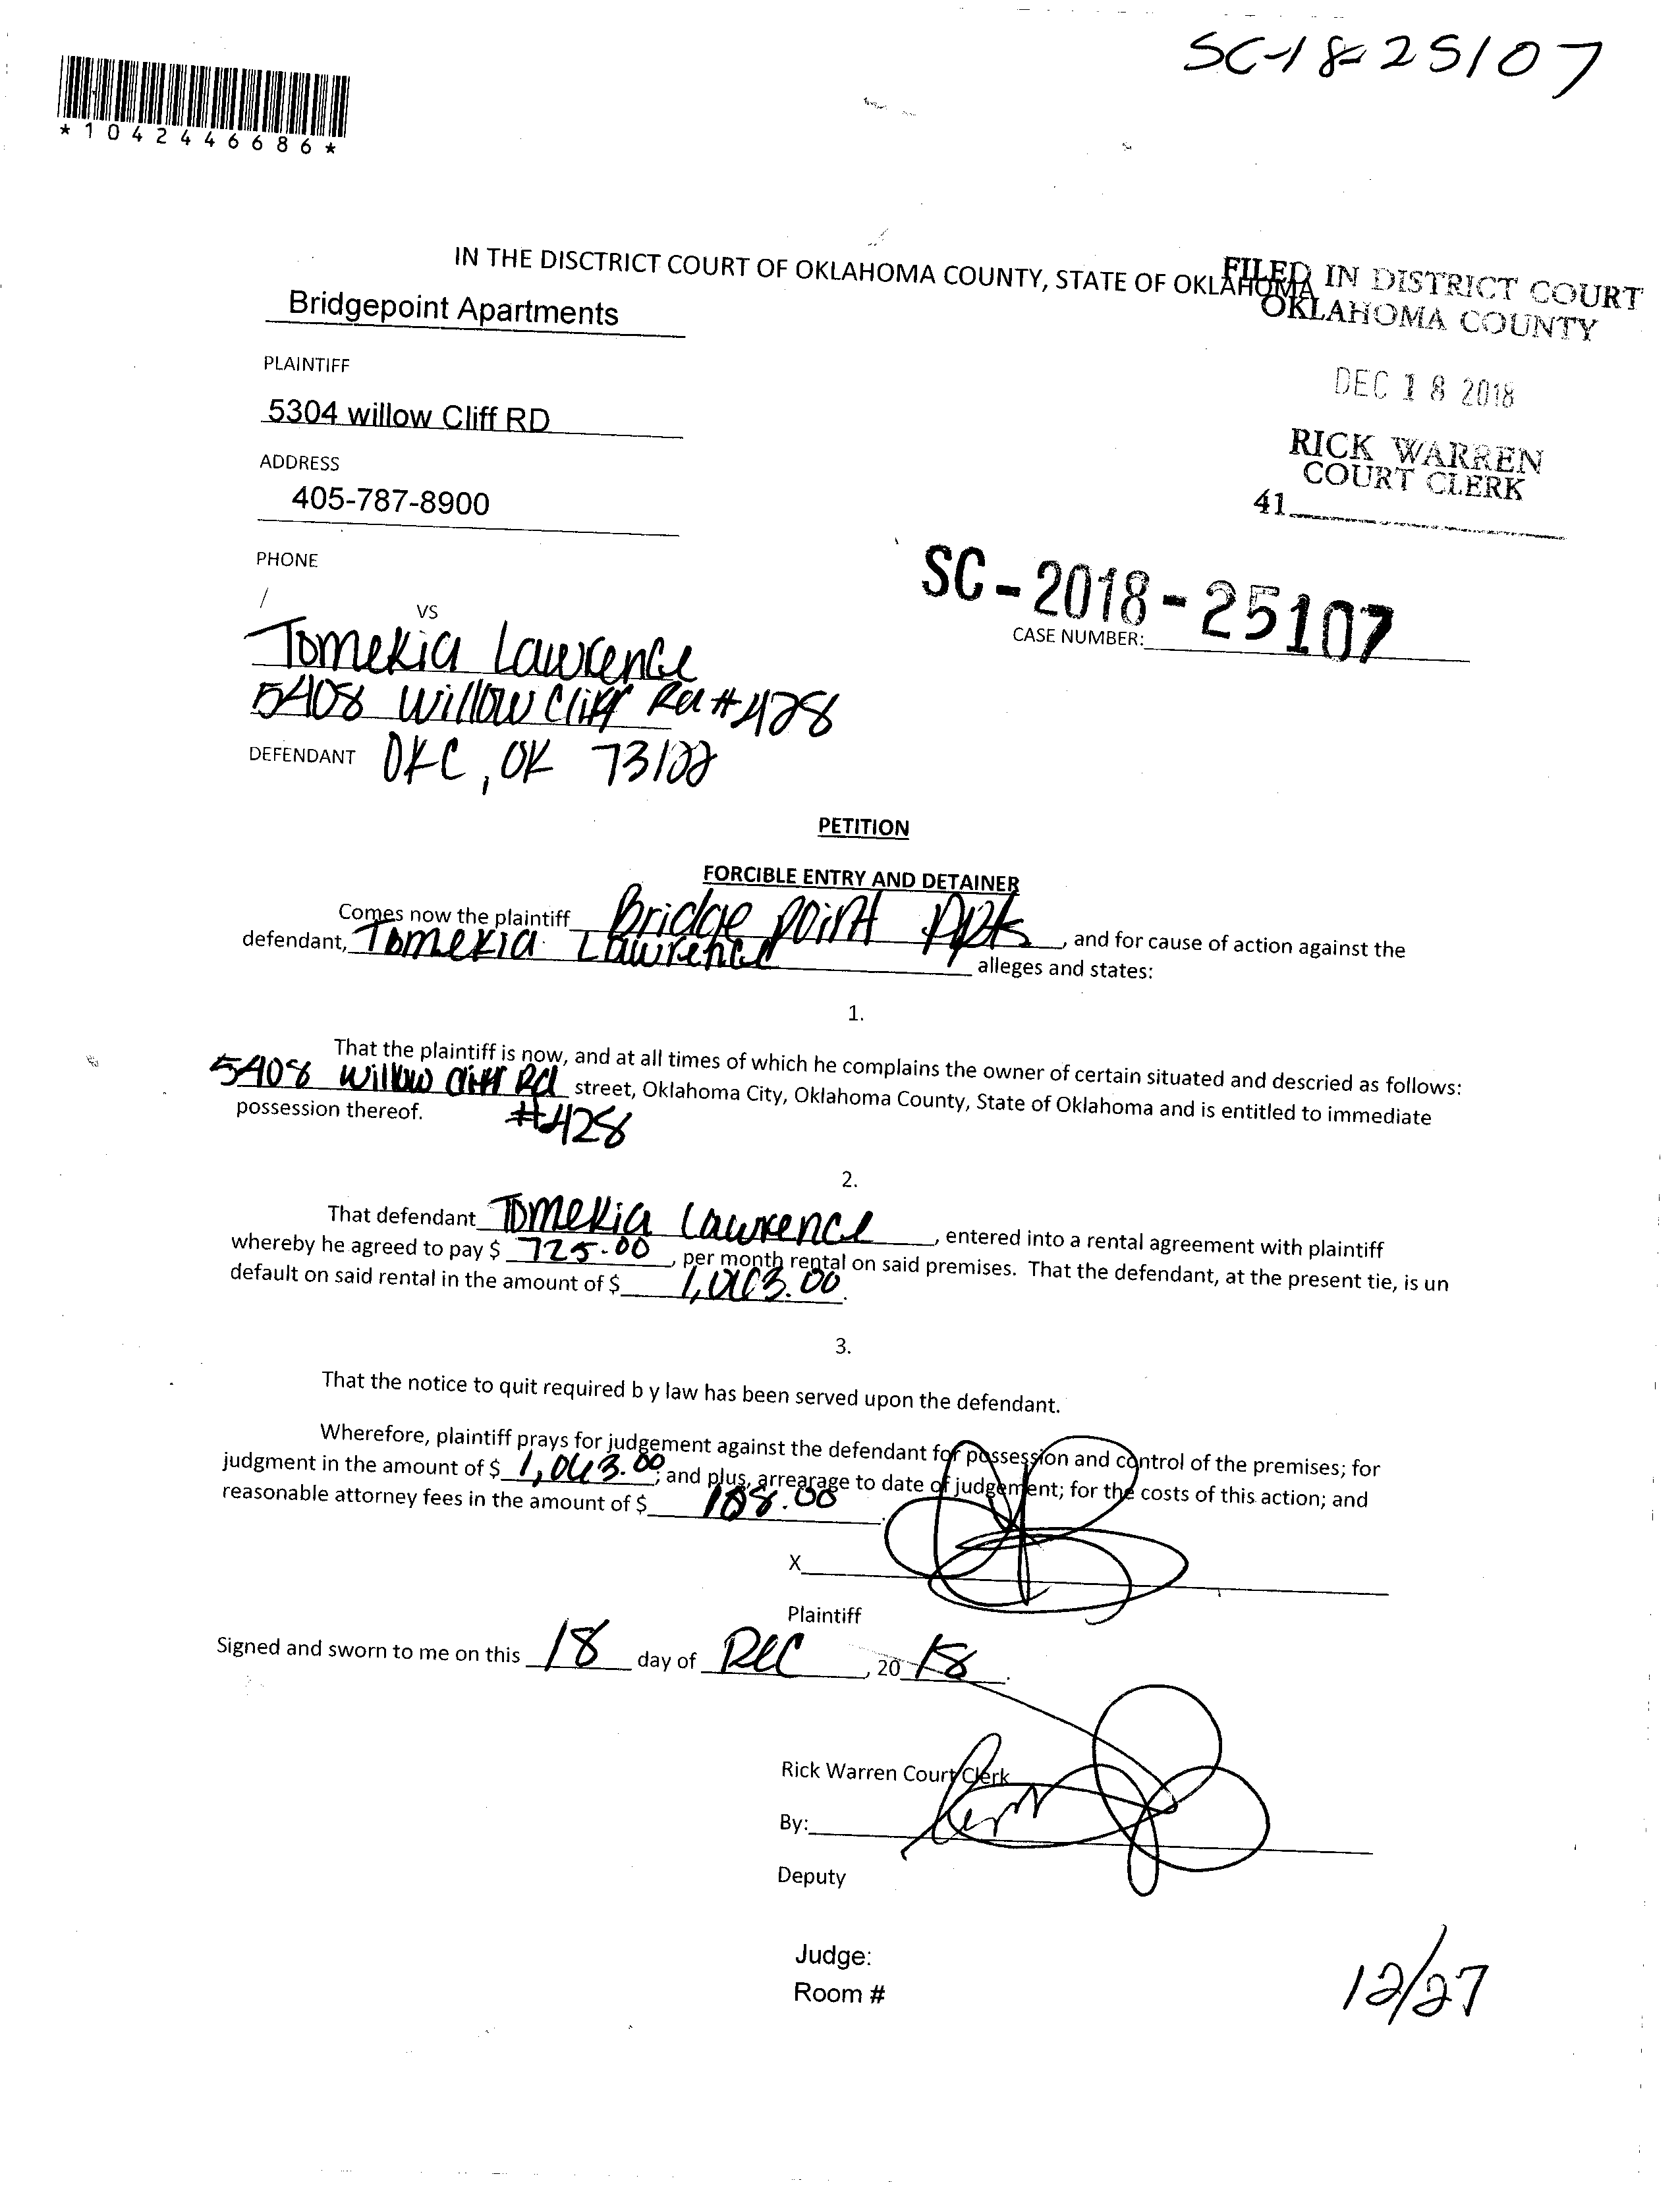 SC-18-25107
*1042446686*
IN THE DISCTRICT COURT OF OKLAHOMA COUNTY, STATE OF OKLAHOMA
FILED IN DISTRICT COURT
OKLAHOMA COUNTY
Bridgepoint Apartments
PLAINTIFF
DEC 18 2018
5304 willow Cliff RD
RICK WARREN
COURT CLERK
ADDRESS
405-787-8900
41
PHONE
/
VS
SC-2018-25107
CASE NUMBER:
Tomekia Lawrence
5408 Willow Cliff Rd #428
DEFENDANT OKC, OK 73122
PETITION
FORCIBLE ENTRY AND DETAINER
Comes now the plaintiff Bridge point Apts, and for cause of action against the
defendant, Tomekia Lawrence alleges and states:
1.
That the plaintiff is now, and at all times of which he complains the owner of certain situated and descried as follows:
5408 Willow Cliff Rd street, Oklahoma City, Oklahoma County, State of Oklahoma and is entitled to immediate
possession thereof. #428
2.
That defendant Tomekia Lawrence, entered into a rental agreement with plaintiff
whereby he agreed to pay $ 725.00, per month rental on said premises. That the defendant, at the present tie, is un
default on said rental in the amount of $ .
3.
That the notice to quit required b y law has been served upon the defendant.
Wherefore, plaintiff prays for judgement against the defendant for possession and control of the premises; for
judgment in the amount of $ ; and plus, arrearage to date of judgement; for the costs of this action; and
reasonable attorney fees in the amount of $ .
X
Plaintiff
Signed and sworn to me on this 18 day of DEC, 20 18.
Rick Warren Court Clerk
By:
Deputy
Judge:
Room #
12/27